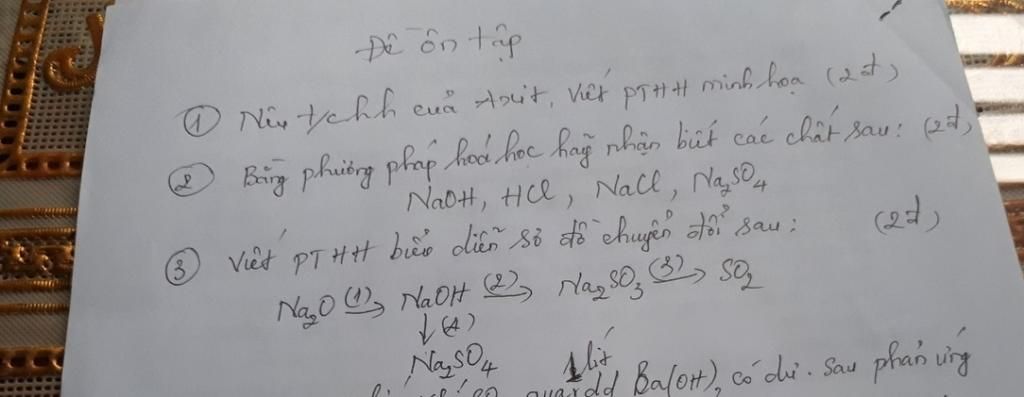 Đề ôn tập
① Nêu t/chh của Axit, viết PTHH minh họa (2đ)
② Bằng phương pháp hoá học hãy nhận biết các chất sau: (2đ)
NaOH, HCl, NaCl, Na₂SO₄
③ Viết PTHH biểu diễn sơ đồ chuyển đổi sau: (2đ)
Na₂O (1)→ NaOH (2)→ Na₂SO₃ (3)→ SO₂
↓(4)
Na₂SO₄
1 lít
qua dd Ba(OH)₂ có dư. Sau phản ứng